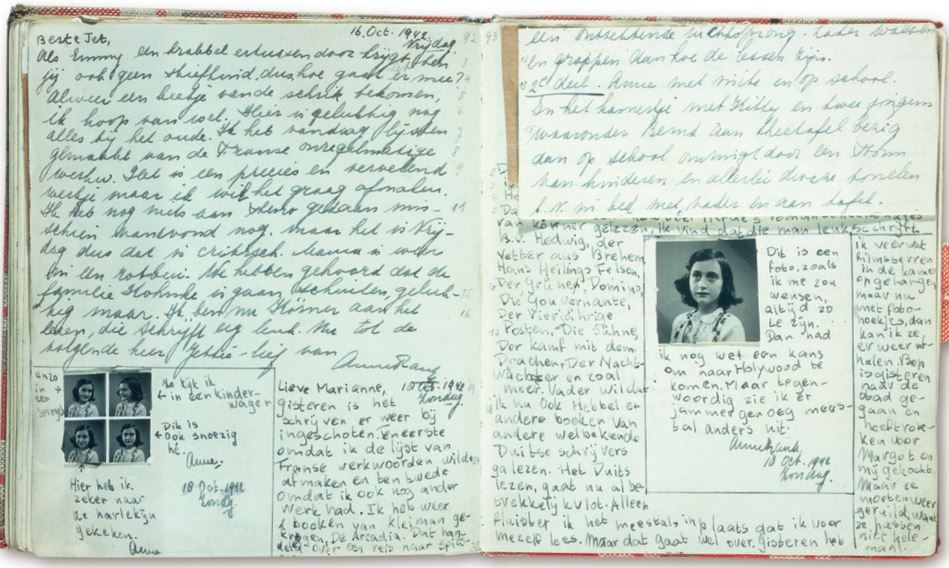 16 Oct. 1942
Vrijdag
92
Beste Jet,
Als Emmy een krabbel ertussen door krijgt, ben
jij ook geen stiefkind, dus hoe gaat er mee?
Alweer een beetje van de schrik bekomen,
ik hoop van wel. Hier is gelukkig nog
alles bij het oude. Ik heb vandaag lijsten
gemaakt van de Franse onregelmatige
werkw. Het is een precies en vervelend
werkje maar ik wil het graag afmaken.
Ik heb nog niets aan Steno gedaan mis-
schien vanavond nog. maar het is Vrij-
dag dus dat is critisch. Mama is weer
in een rotbui. We hebben gehoord dat de
familie is gaan schuilen, geluk-
kig maar. Ik ben nu Körner aan het
lezen, die schrijft erg leuk. Nu tot de
volgende keer Jettie-lief van
Anne Frank
enzo
in
een
spiegel
Zo kijk ik
in een kinder-
wagen
Dit is
ook snoezig
hè.
Anne.
18 Oct. 1942
Zondag
Hier heb ik
zeker naar
de harlekijn
gekeken.
Anne
18 Oct. 1942
Zondag.
Lieve Marianne,
gisteren is het
schrijven er weer bij
ingeschoten. Teneerste
omdat ik de lijst van
Franse werkwoorden wilde
afmaken en ten twede
omdat ik ook nog ander
werk had. Ik heb weer
2 boeken van Kleiman ge-
kregen, De Arcadia. Dat han-
delt over een reis naar Spitz-
93
een ontzettende luchtsprong. Later wassen
en grappen aan hoe de lessen zijn.
2e deel. Anne met visite en op school.
In het kamertje met Kitty en twee jongens
waaronder Bernd aan theetafel bezig
dan op school omringd door een
van kinderen en allerlei dwaze tonelen
b.v. in bed met vader en aan tafel.
van Körner gelezen, ik vind dat die man leuk schrijft.
B.v. Hedwig, der
Vetter aus Bremen
Hans Heilings Felsen,
Der Grüne Domino,
Die Gouvernante,
Der Vierjährige
Posten, Die Sühne,
Der Kampf mit dem
Drachen, Der Nacht-
wächter en zoal
meer. Vader wil dat
ik nu ook Hebbel en
andere boeken van
andere welbekende
Duitse schrijvers
ga lezen. Het Duits
lezen, gaat nu al be-
trekkelijk vlot. Alleen
fluister ik het meestal in plaats dat ik voor
mezelf lees. Maar dat gaat wel over. gisteren heb
Dit is een
foto, zoals
ik me zou
wensen,
altijd zo
te zijn.
Dan had
ik nog wel een kans
om naar Holywood te
komen. Maar tegen-
woordig zie ik er
jammer genoeg mees-
tal anders uit.
Annefrank.
18 Oct. 1942
Zondag.
ik veervast
filmsterren
in de kamer
opgehangen
maar nu
met foto-
hoekjes, dan
kan ik ze
er weer af-
halen. Bep
is gisteren
naar de
stad ge-
gaan en
heeft rok-
ken voor
Margot en
mij gekocht.
Maar ze
moeten weer
geruild, want
ze passen
niet hele-
maal.